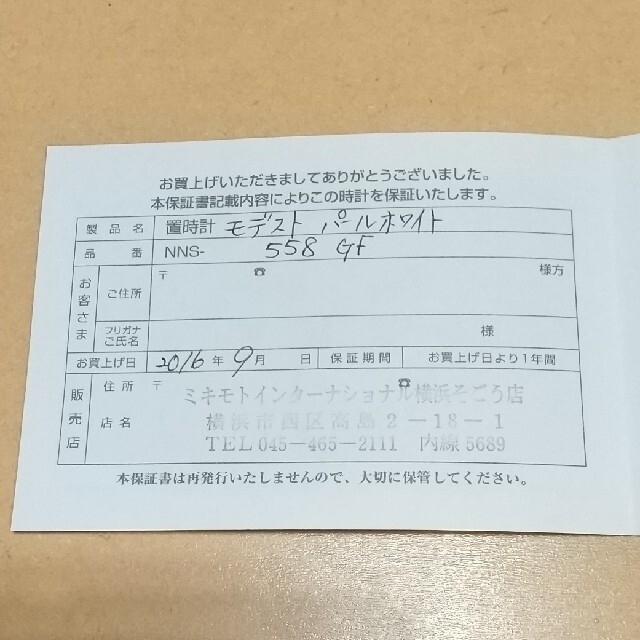 お買上げいただきましてありがとうございました。
本保証書記載内容によりこの時計を保証いたします。
製品名 置時計 モデスト パールホワイト
品番 NNS- 558 GF
お客さま ご住所 〒 ☎ 様方
フリガナ ご氏名 様
お買上げ日 2016年 9月 日 保証期間 お買上げ日より1年間
販売店 住所 〒 ☎
店名
ミキモトインターナショナル横浜そごう店
横浜市西区高島2-18-1
TEL 045-465-2111 内線5689
本保証書は再発行いたしませんので、大切に保管してください。